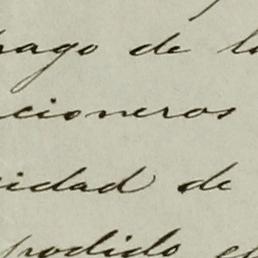 pago de l
cioneros
idad de
podido e